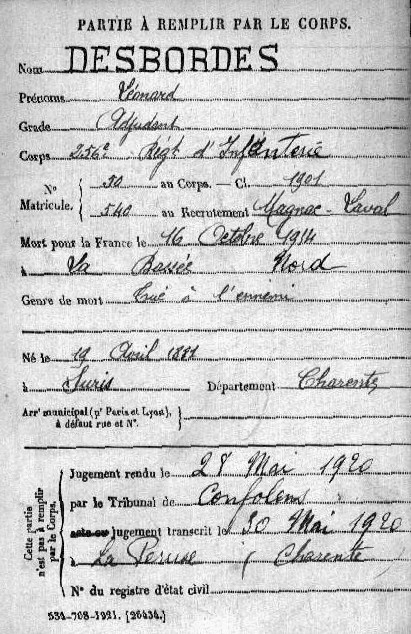 PARTIE À REMPLIR PAR LE CORPS.
Nom DESBORDES
Prénoms Léonard
Grade Adjudant
Corps 256e Regt d'Infanterie
N° Matricule. { 50 au Corps. — Cl. 1901
540 au Recrutement Magnac-Laval
Mort pour la France le 16 Octobre 1914
à La Bassée Nord
Genre de mort Tué à l'ennemi
Né le 19 Avril 1881
à Suris Département Charente
Arrt municipal (pr Paris et Lyon), à défaut rue et N°. }
Cette partie n'est pas à remplir par le Corps.
Jugement rendu le 28 Mai 1920
par le Tribunal de Confolens
acte ou jugement transcrit le 30 Mai 1920
à La Péruse (Charente
N° du registre d'état civil
534-708-1921. [26434.]